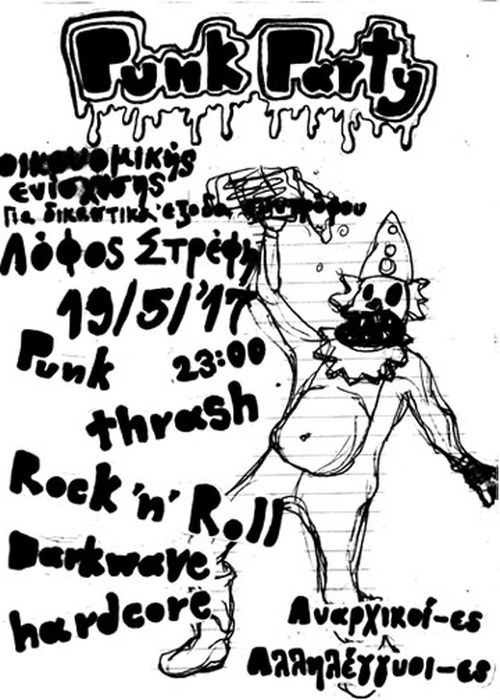 Punk Party
οικονομικής
ενίσχυσης
Για δικαστικά έξοδα συντρόφου
Λόφος Στρέφη
19/5/'17
Punk 23:00
thrash
Rock 'n' Roll
Darkwave
hardcore
Αναρχικοί-ες
Αλληλέγγυοι-ες